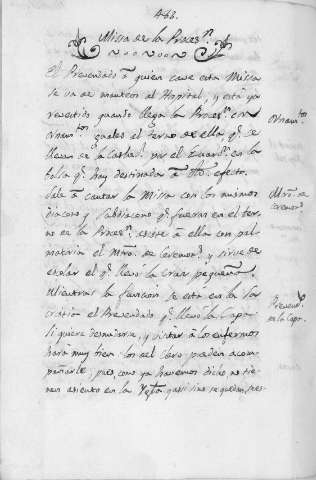 488.
Missa de la Proces.n
El Prevendado à quien cave esta Missa
se va de manteos al Hospital, y està ya
revestido quando llega la Proces.n con
ornam.tos yguales al terno de ella q.e se
llevan de la Cathed.l por el Guard.n en la
bolsa q.e hay destinada à d.ho efecto.
Sale à cantar la Missa con los mismos
diacono y Subdiacono q.e fueron en el ter
no de la Proces.n asiste à ella con pal
matoria el Mtro. de Ceremon.s y sirve de
acolar el q.e llevó la Cruz pequeña.
Mientras la funcion se està en la Sa
cristia el Prevendado q.e llevò la Capa
si quiere desnudarse, y visitar à los enfermos
harà muy bien los del Clero pueden acom
pañarle; pues, como ya havemos dicho, no tie
nen asiento en la Ygla.
Ornam.tos
Mtro. de
Ceremon.s
Prevend.o
en la Capa.